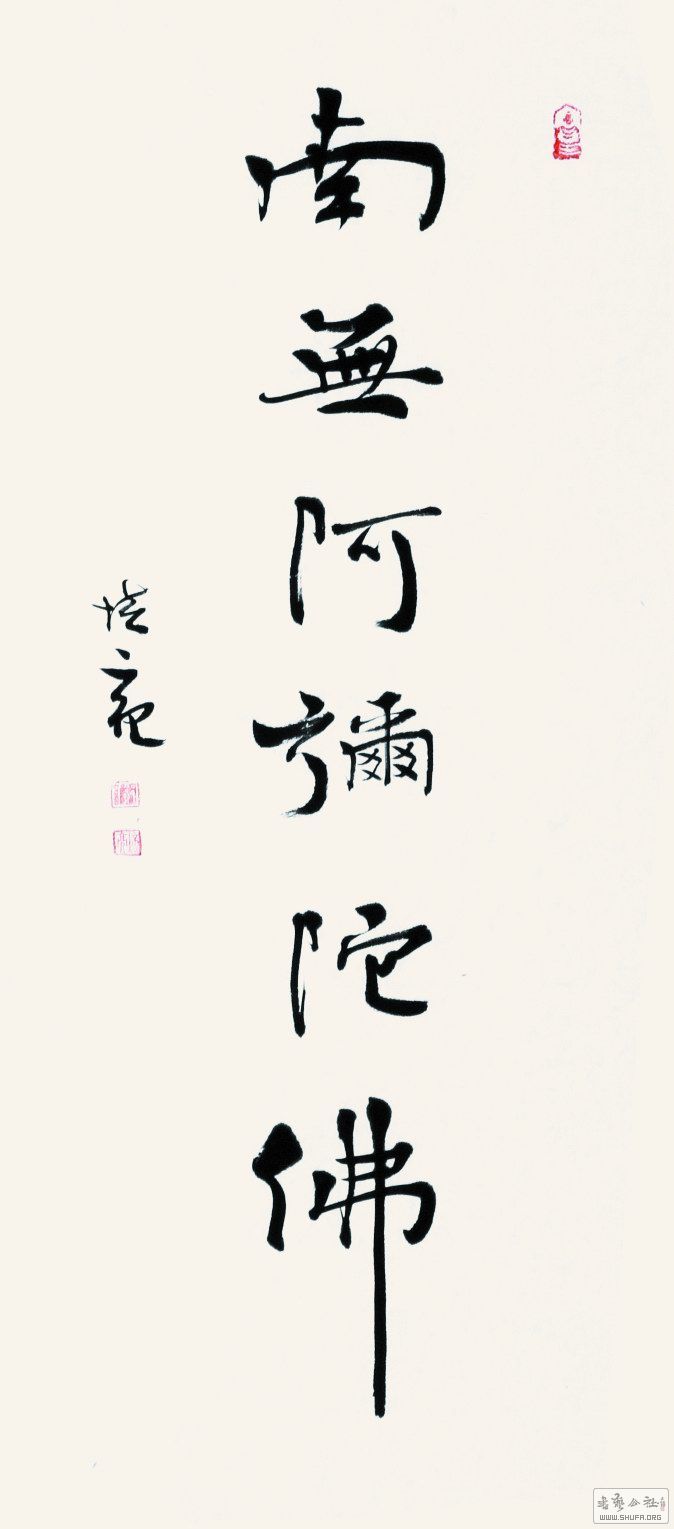 南無阿彌陀佛
書藝公社
WWW.SHUFA.ORG